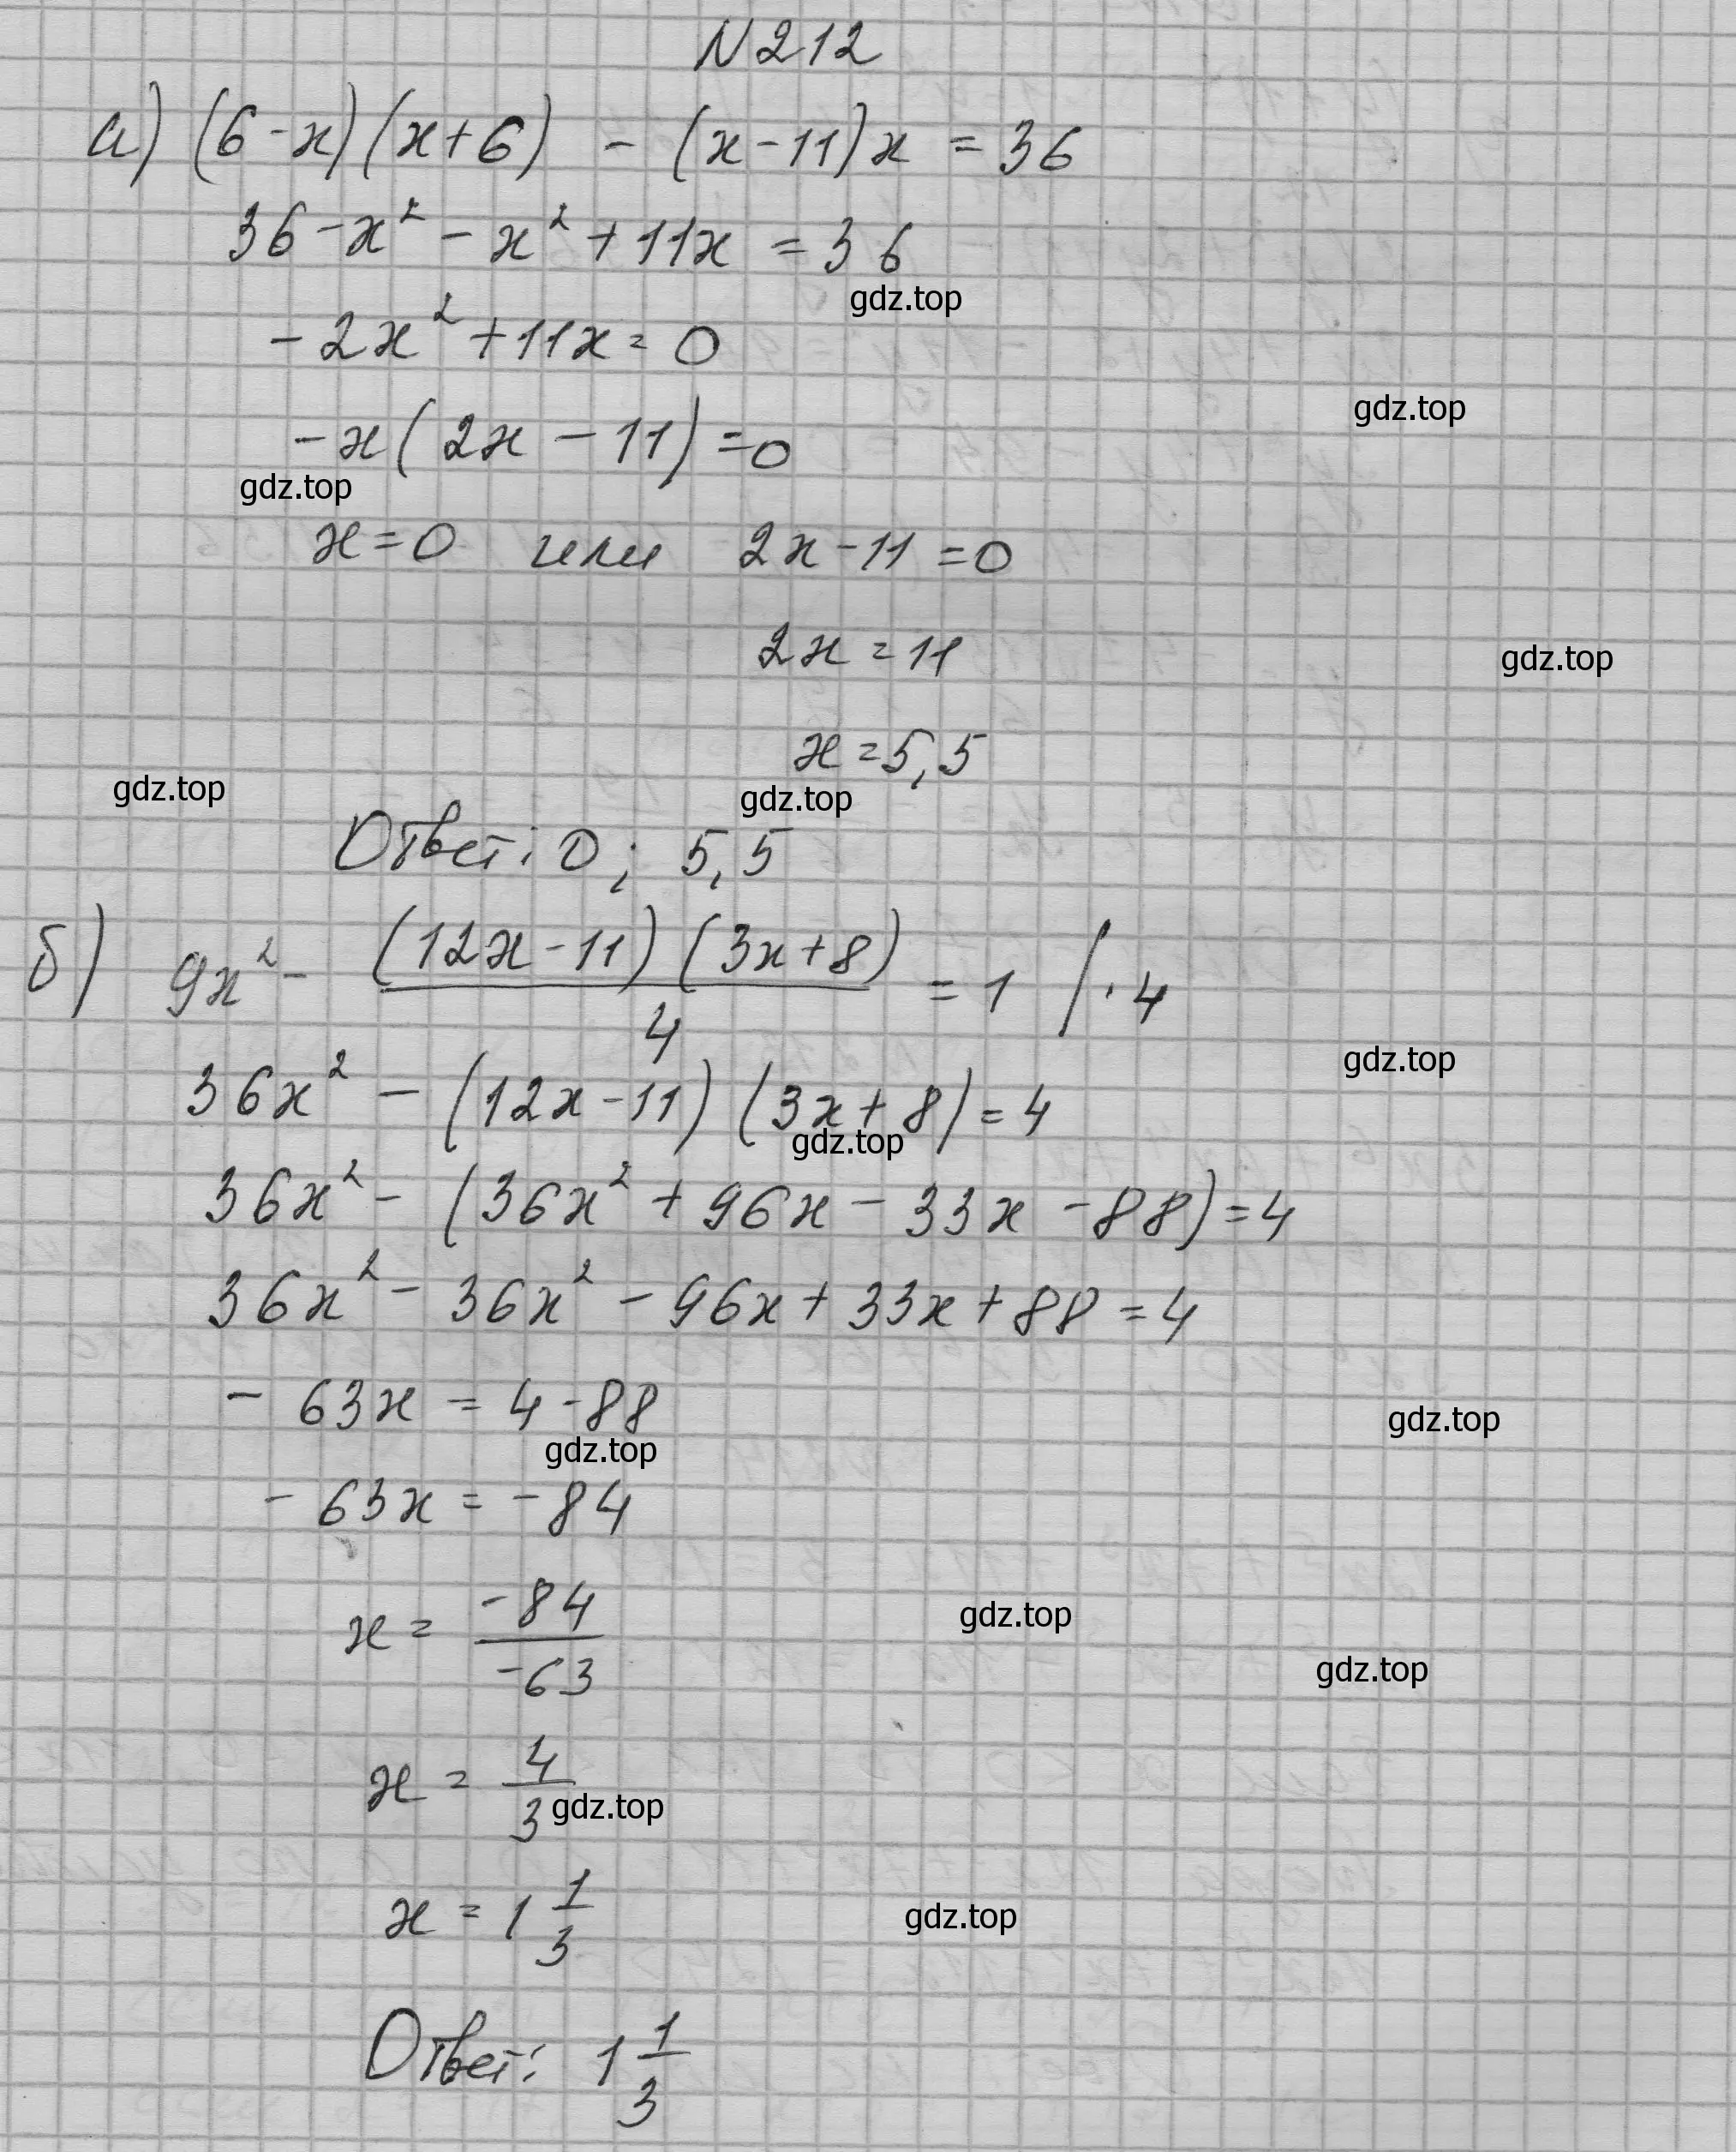 N 212
а) (6-x)(x+6) - (x-11)x = 36
36 - x² - x² + 11x = 36
gdz.top
-2x² + 11x = 0
gdz.top
-x(2x - 11) = 0
gdz.top
x = 0 или 2x - 11 = 0
2x = 11
gdz.top
x = 5,5
gdz.top
gdz.top
Ответ: 0; 5,5
б) 9x² - (12x-11)(3x+8)/4 = 1 / · 4
gdz.top
36x² - (12x-11)(3x+8) = 4
gdz.top
36x² - (36x² + 96x - 33x - 88) = 4
36x² - 36x² - 96x + 33x + 88 = 4
- 63x = 4 - 88
gdz.top
gdz.top
- 63x = - 84
x = -84/-63
gdz.top
gdz.top
x = 4/3
gdz.top
x = 1 1/3
gdz.top
Ответ: 1 1/3